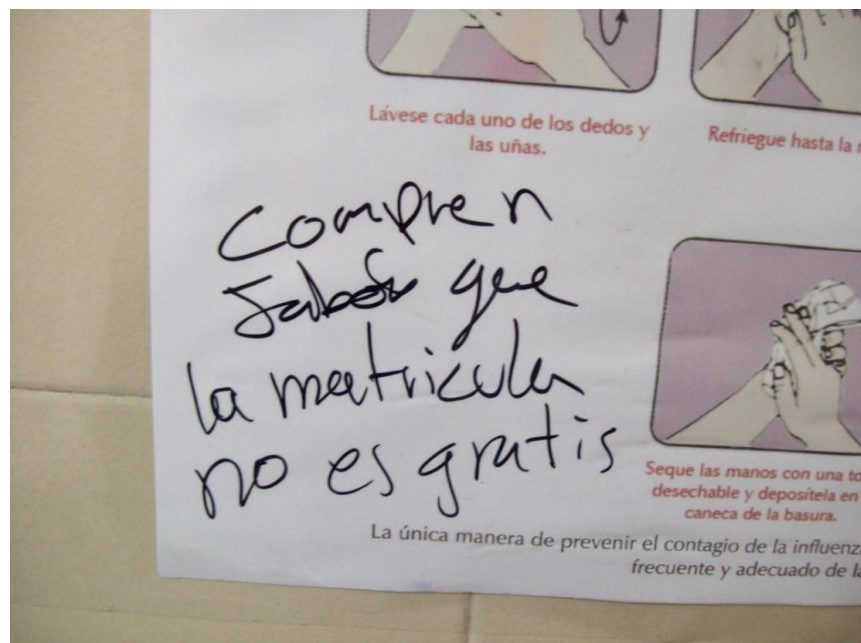 Lávese cada uno de los dedos y
las uñas.
Refriegue hasta la
Compren
Jabón que
la matricula
no es gratis
Seque las manos con una
desechable y deposítela en
caneca de la basura.
La única manera de prevenir el contagio de la
frecuente y adecuado de